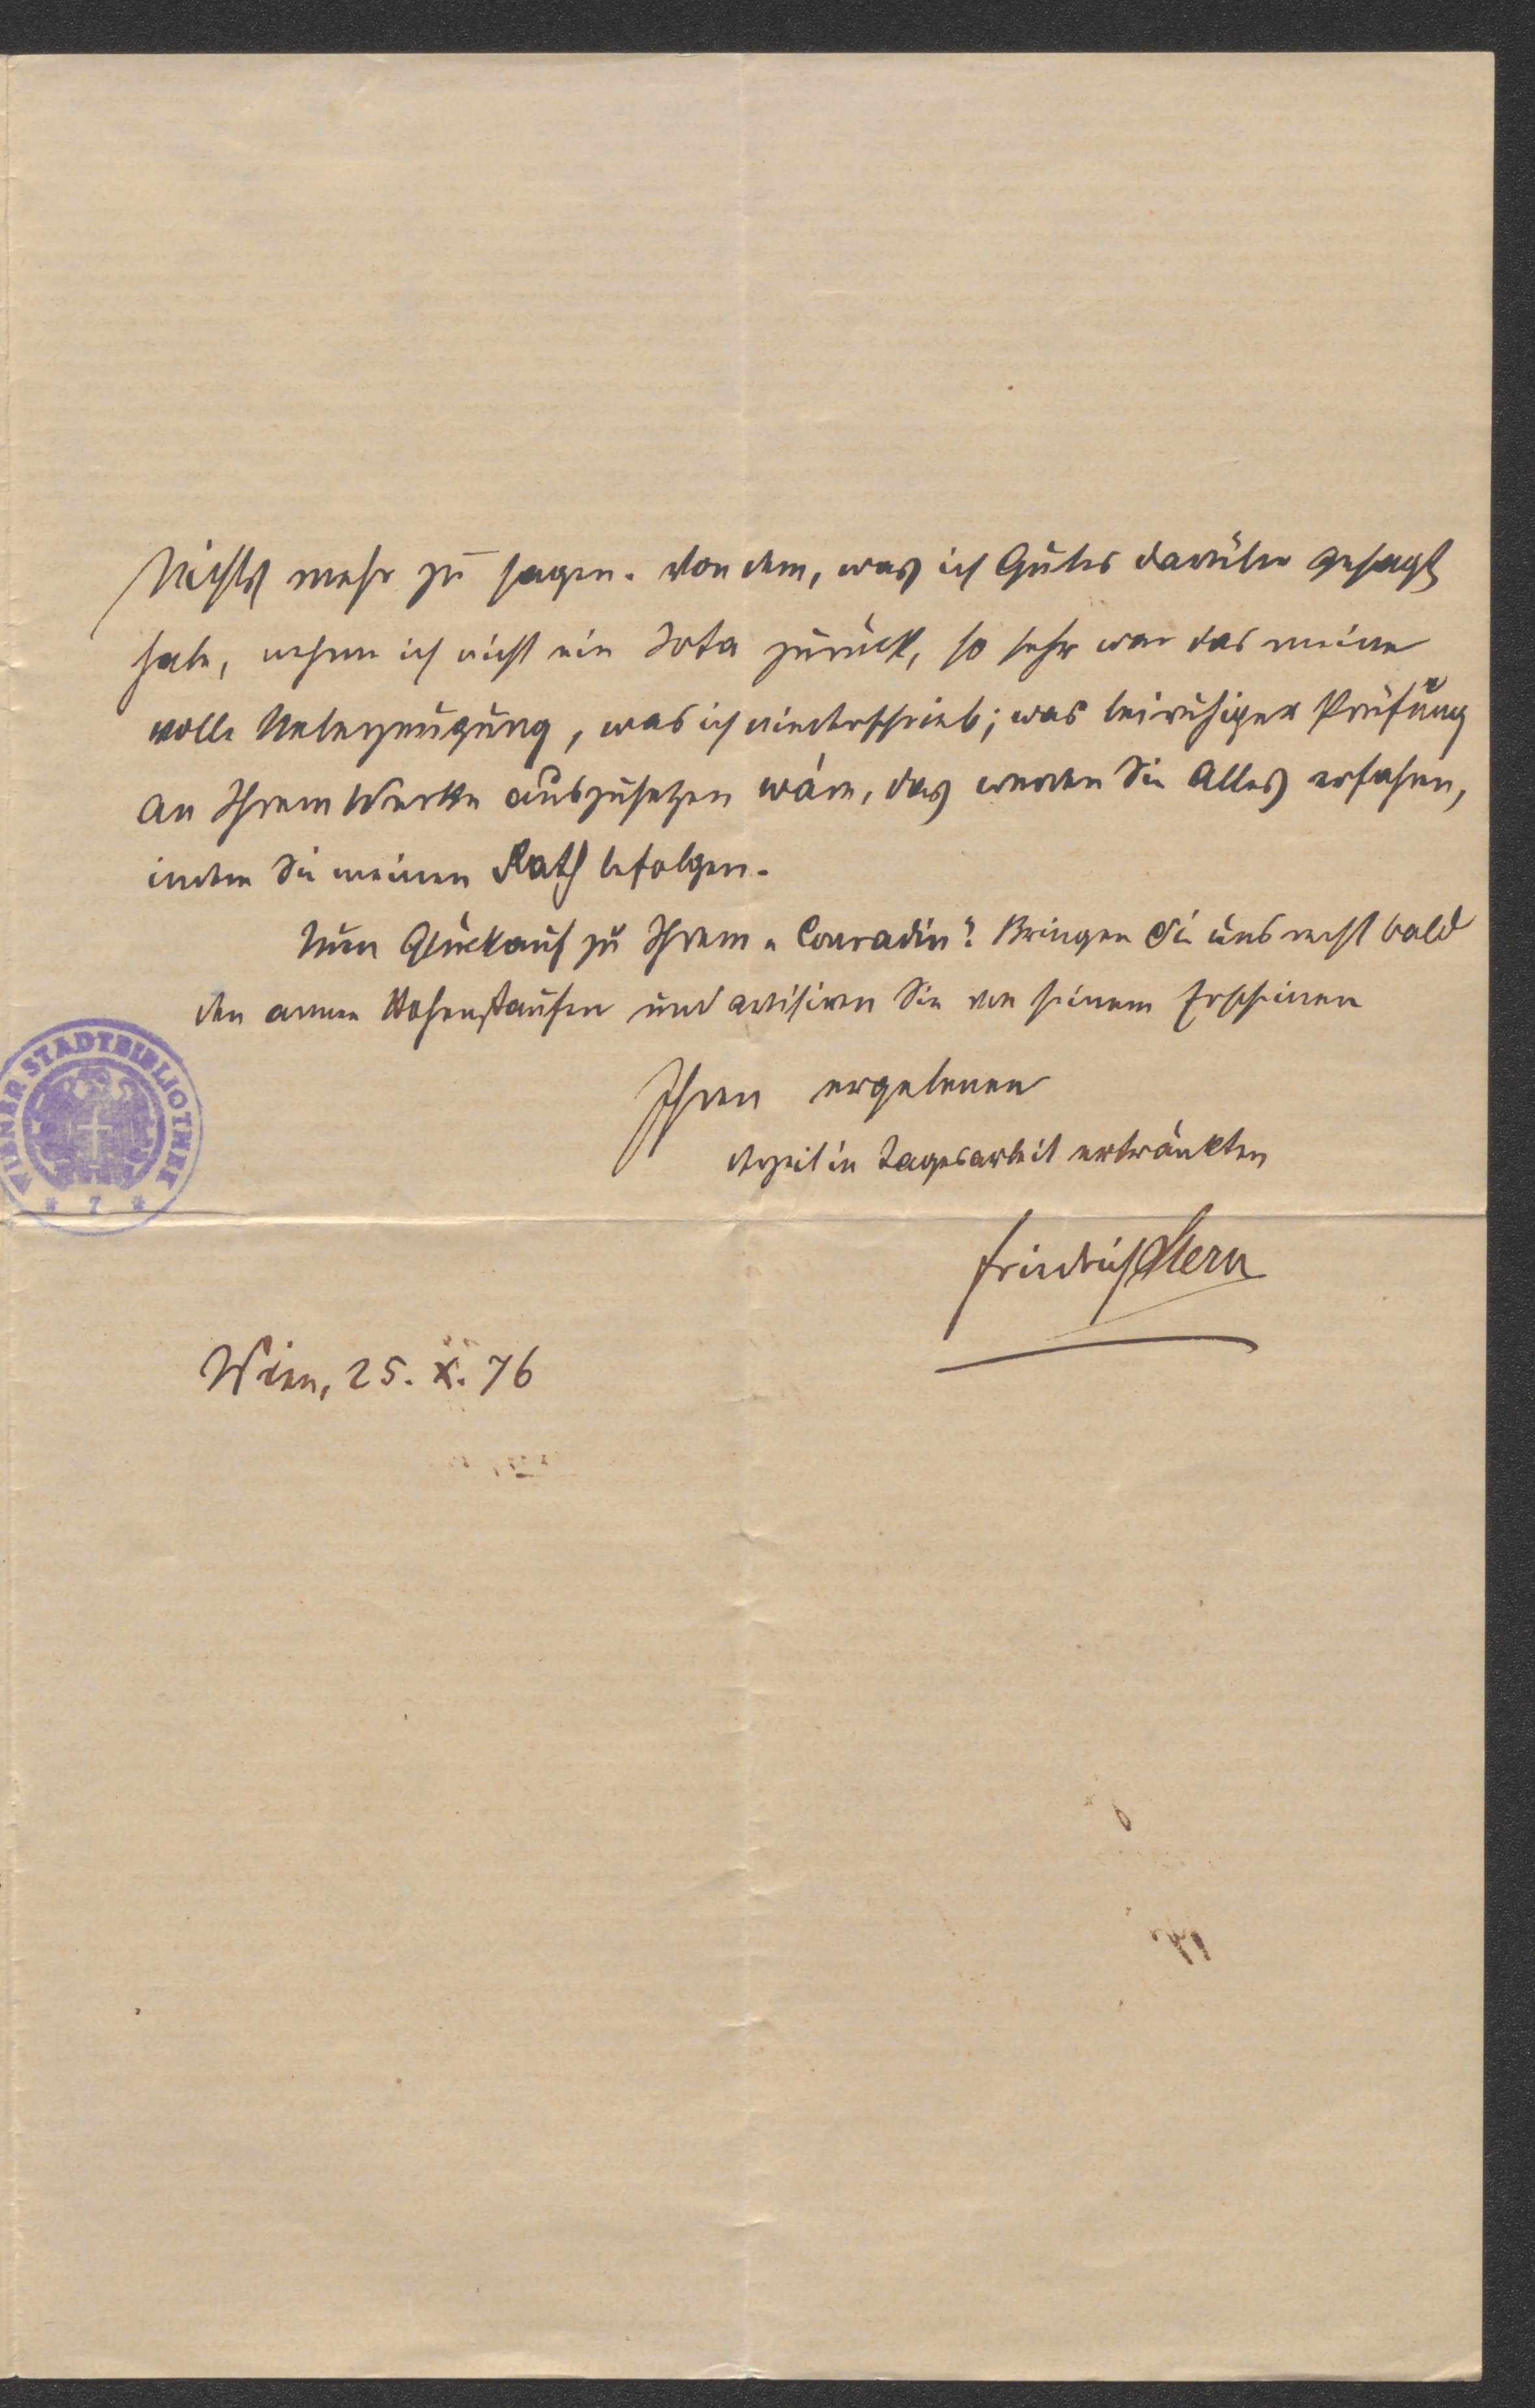 Nichts mehr zu sagen. Von dem, was ich Gutes darüber gesagt
habe, nehme ich nicht ein Iota zurück, so sehr war das meine
volle Ueberzeugung, was ich niederschrieb; was bei ruhiger Prüfung
an Ihrem Werke auszusetzen wäre, das werden Sie Alles erfahren,
indem Sie meinen Rath befolgen.
Nun Glückauf zu Ihrem „Conradin“! Bringen Sie uns recht bald
den armen Hohenstaufen und avisiren Sie von seinem Erscheinen
Ihren ergebenen
derzeit in Tagesarbeit ertränkten
Friedrich Stern
Wien, 25. X. 76
WIENER STADTBIBLIOTHEK
* 7 *